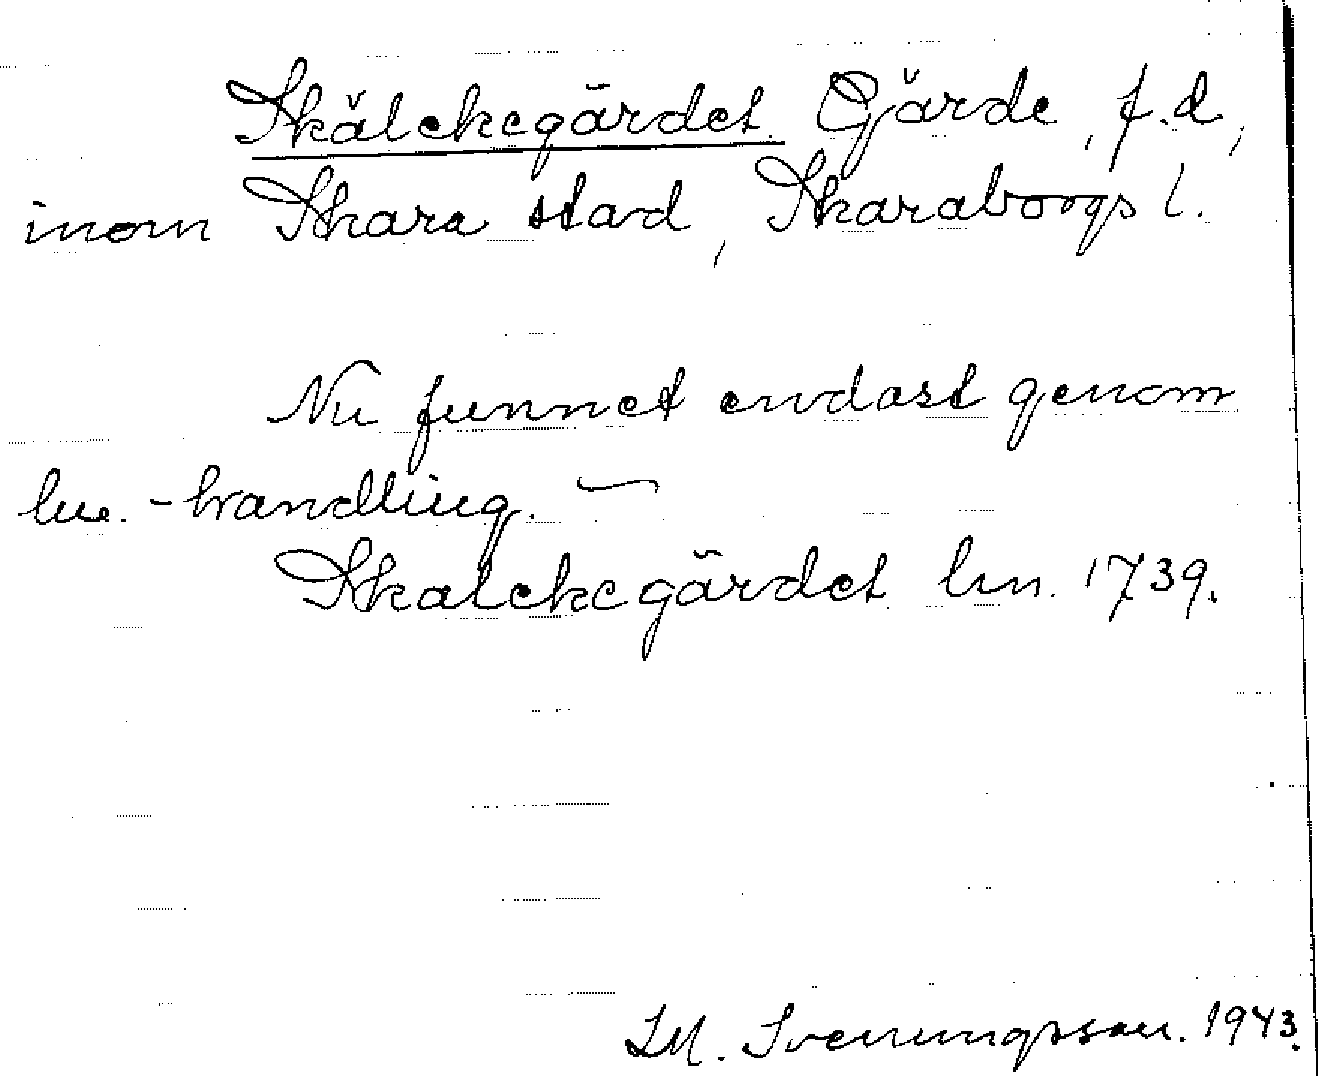 Skälckegärdet. Gärde, f.d.,
inom Skara stad, Skaraborgs l.
Nu funnet endast genom
lm.-handling. —
Skalckegärdet lm. 1739.
M. Svenungsson. 1943.